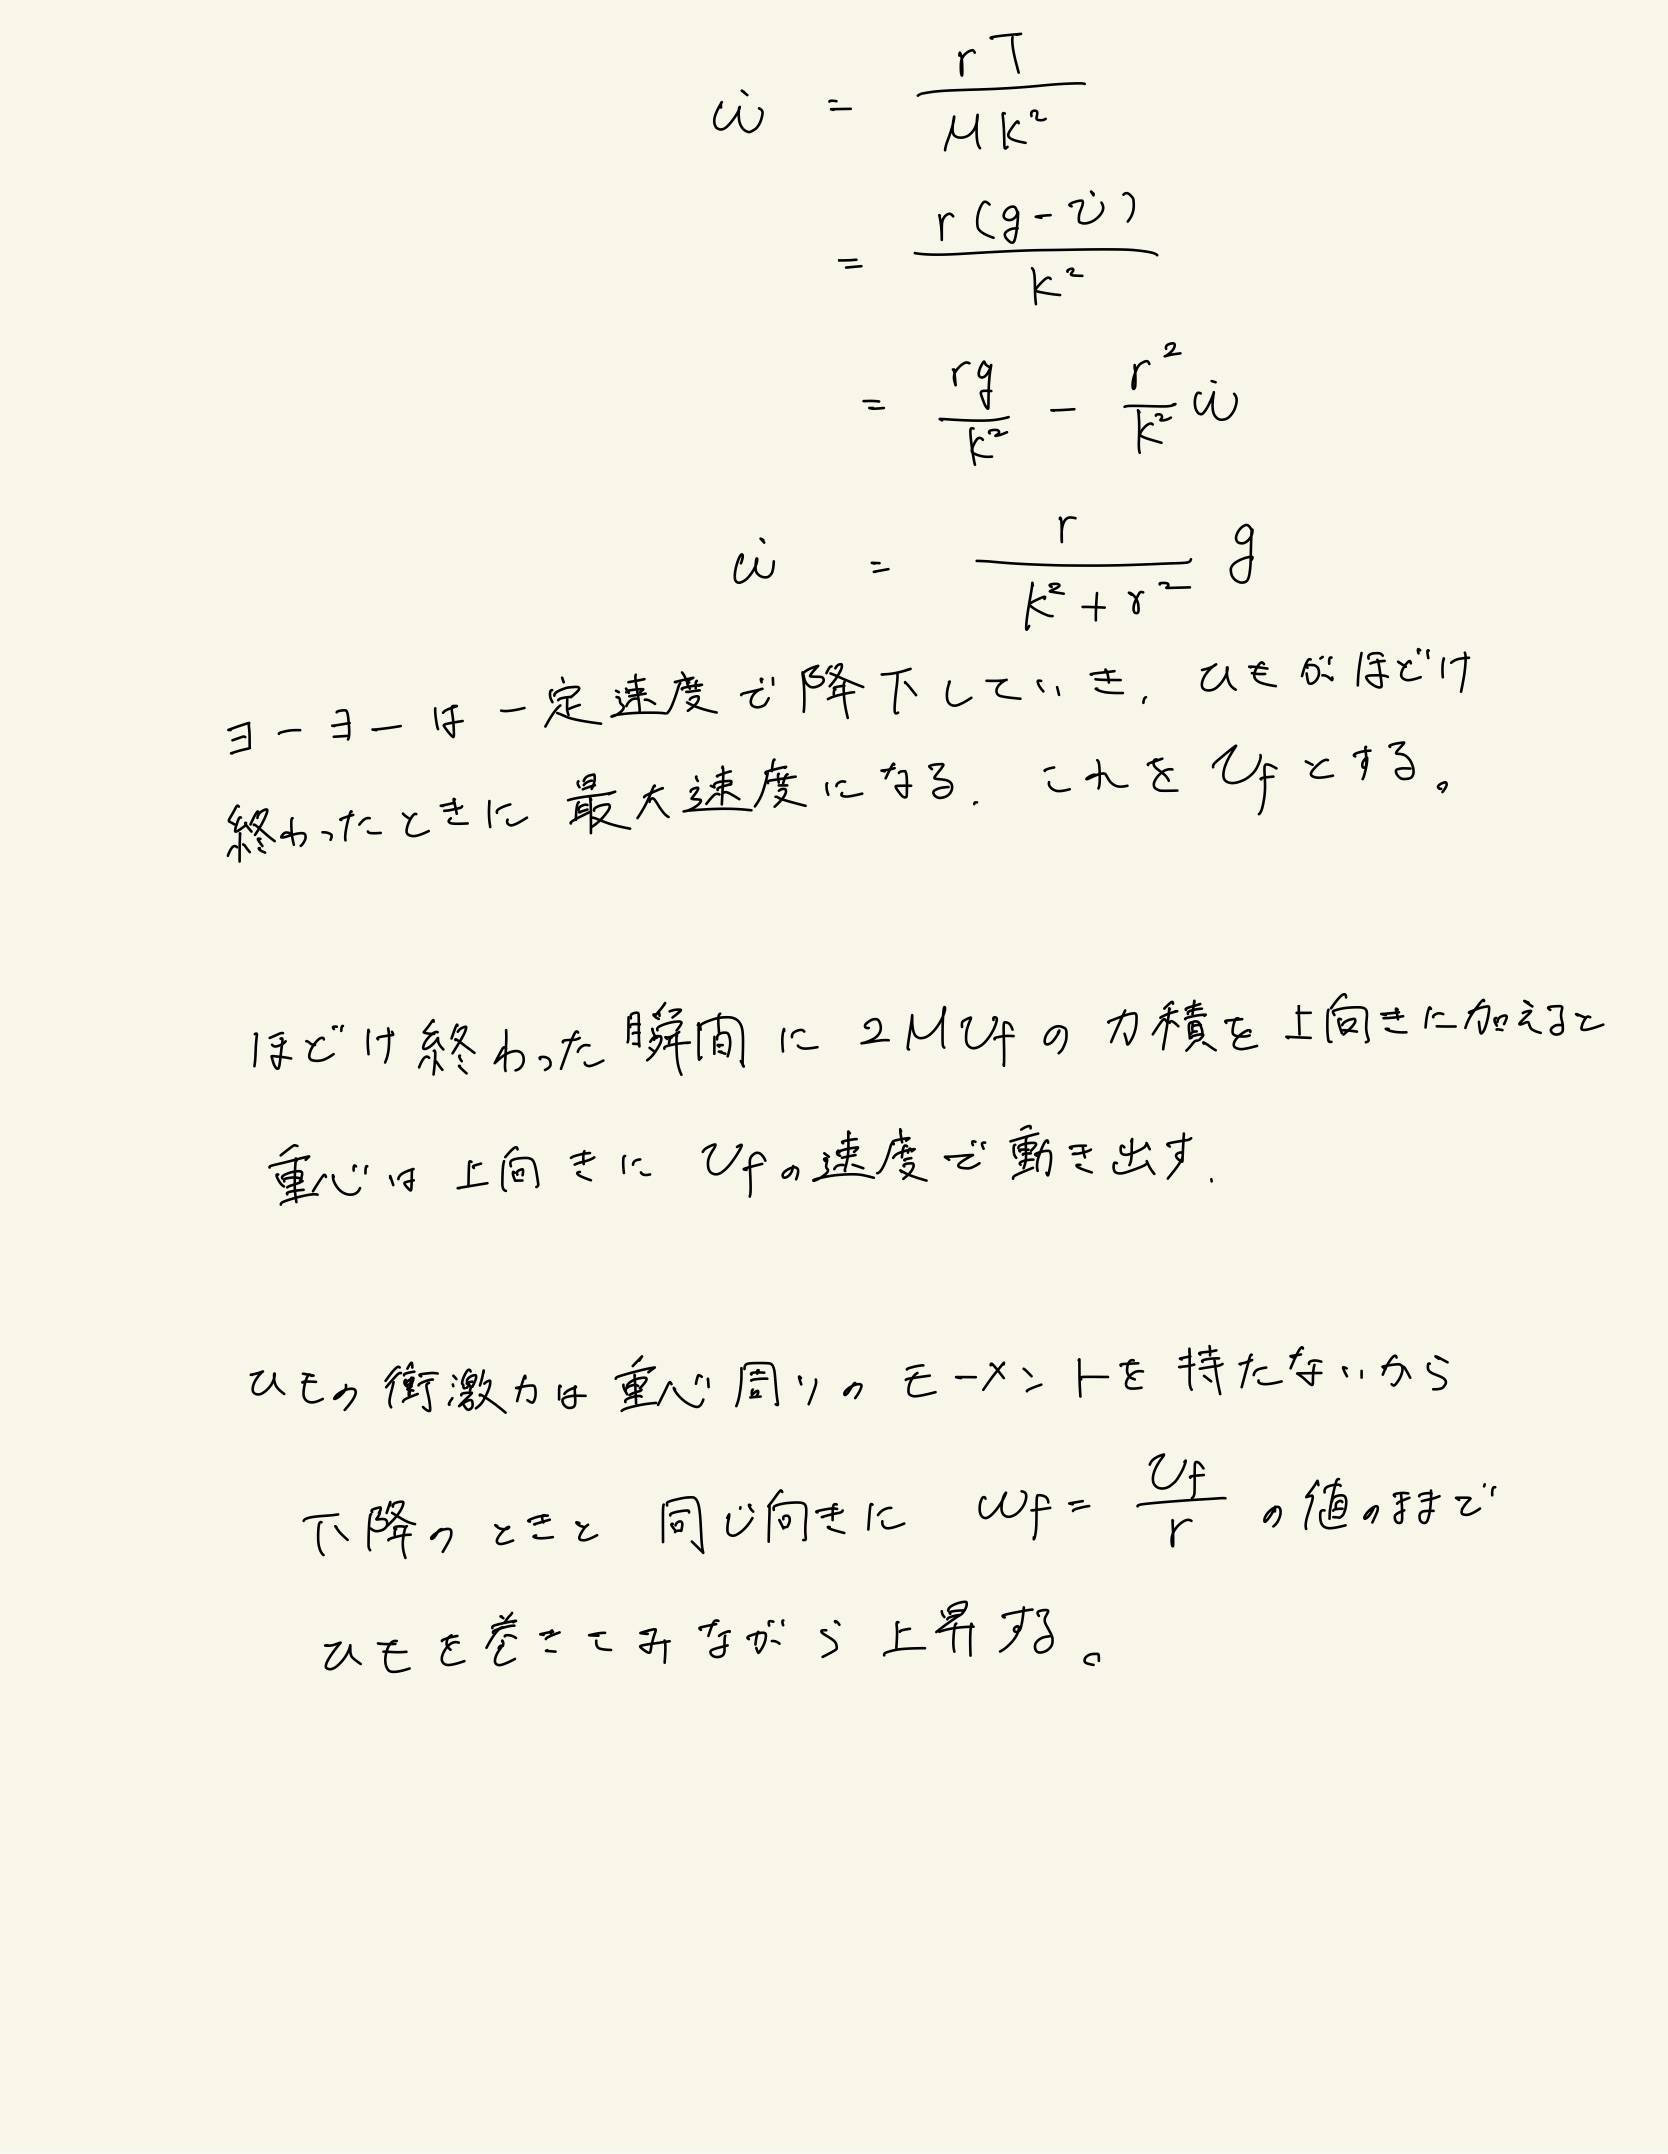 ω̇ = rT / Mk²
= r(g - v̇) / k²
= rg / k² - r² / k² ω̇
ω̇ = r / (k² + r²) g
ヨーヨーは一定速度で降下していき. ひもがほどけ
終わったときに最大速度になる. これを v_f とする。
ほどけ終わった瞬間に 2Mv_f の力積を上向きに加えると
重心は上向きに v_f の速度で動き出す.
ひもの衝激力は重心周りのモーメントを持たないから
下降のときと同じ向きに ω_f = v_f / r の値のままで
ひもを巻きこみながら上昇する。